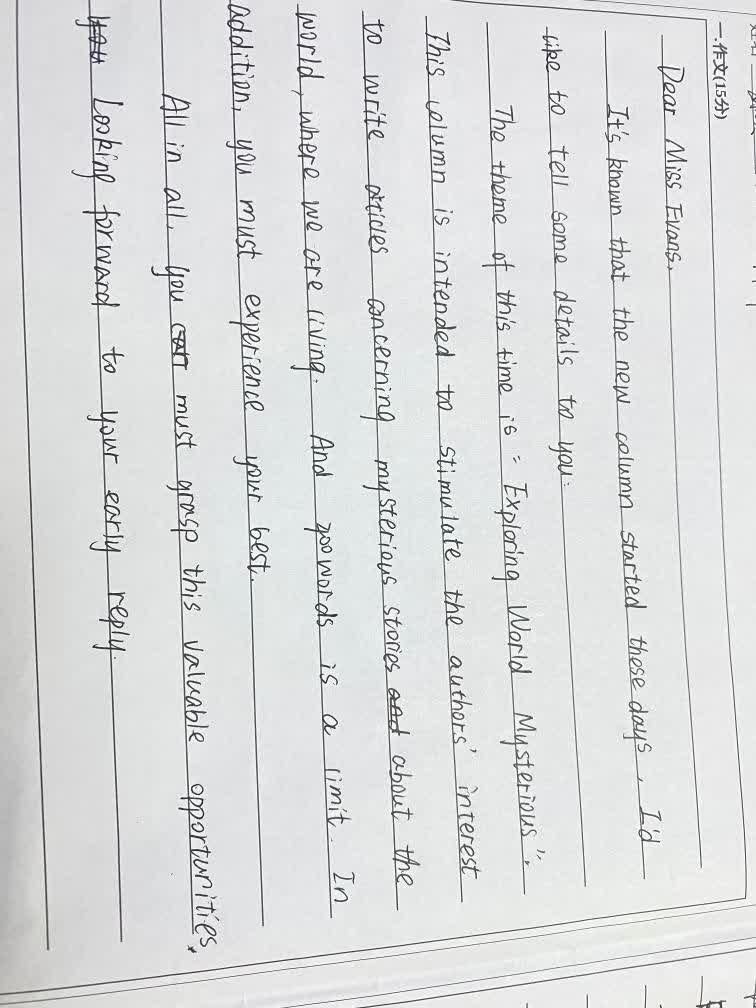 一.作文(15分)
Dear Miss Evans,
It's known that the new column started these days, I'd
like to tell some details to you.
The theme of this time is "Exploring World Mysterious".
This column is intended to stimulate the authors' interest
to write articles concerning mysterious stories and about the
world, where we are living. And 700 words is a limit. In
addition, you must experience your best.
All in all, you must grasp this valuable opportunities.
you Looking forward to your early reply.